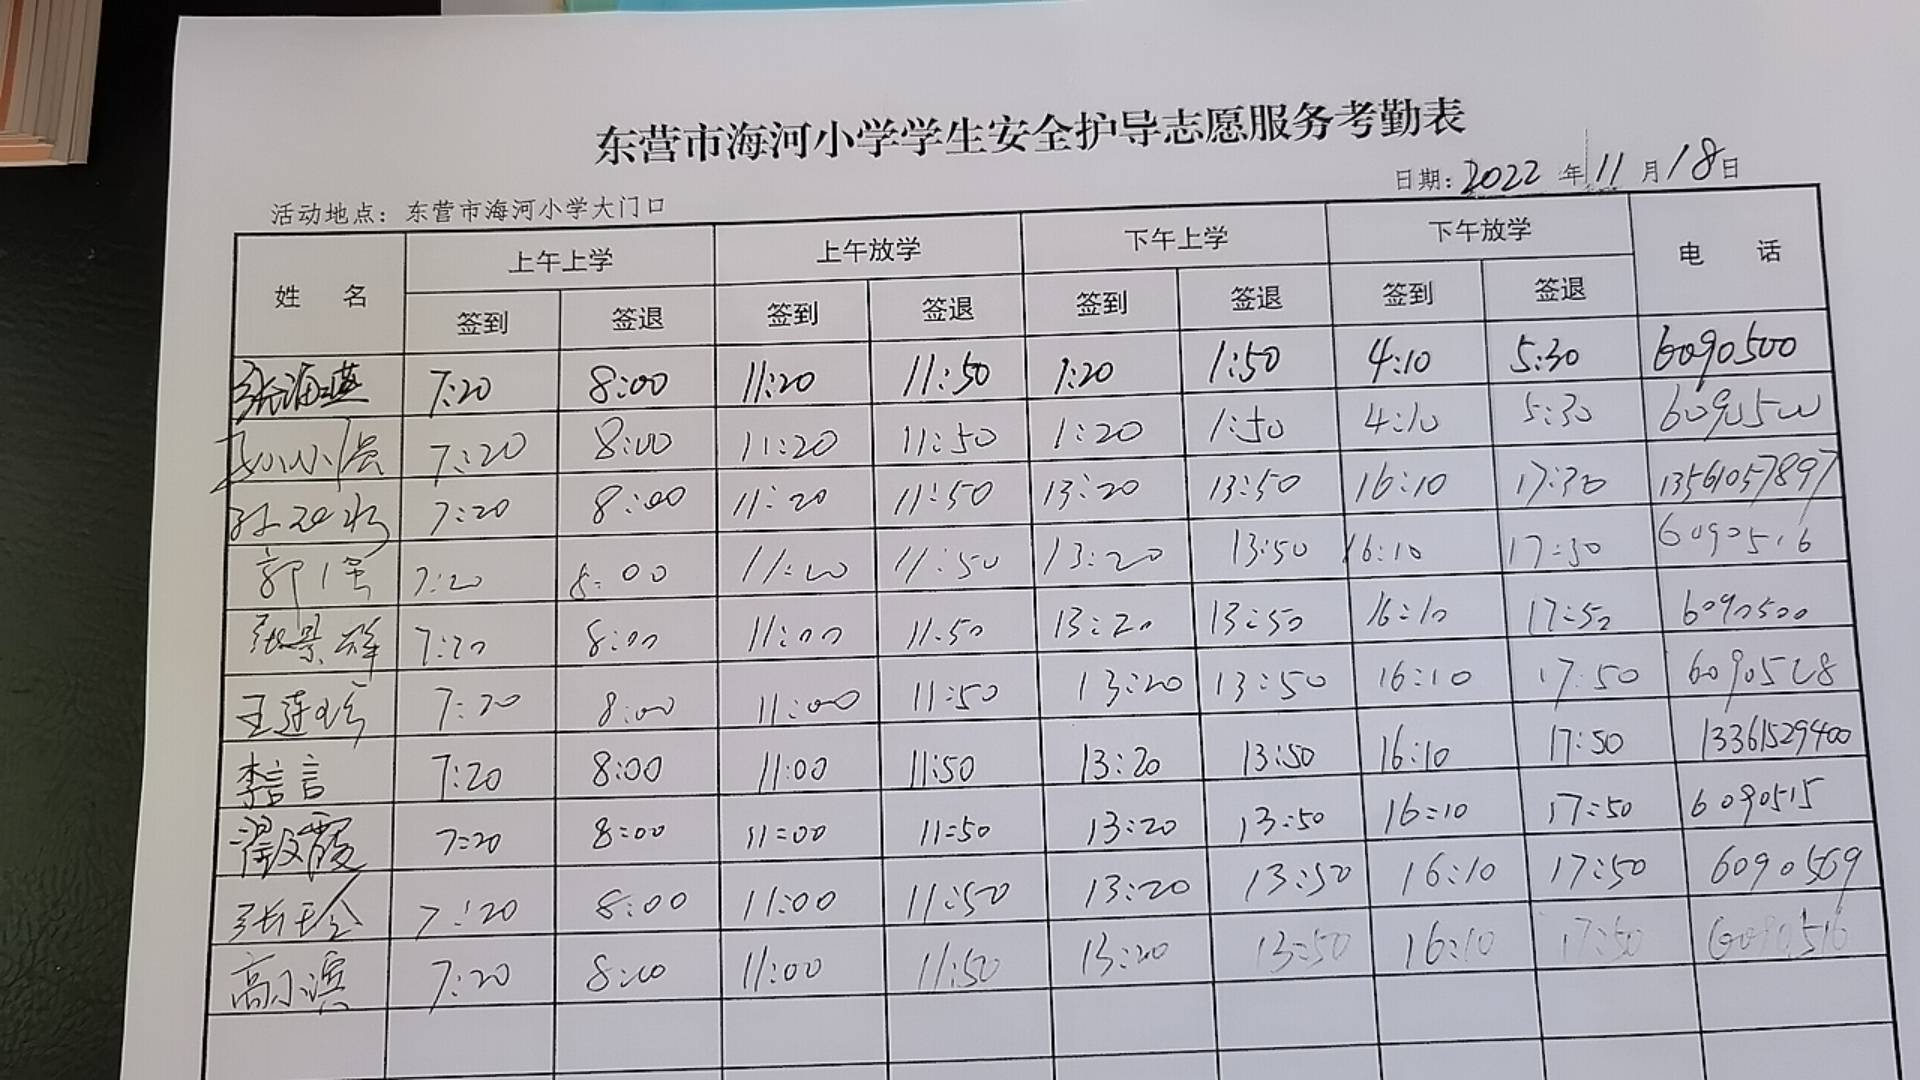 东营市海河小学学生安全护导志愿服务考勤表
日期: 2022 年 11 月 18 日
活动地点: 东营市海河小学大门口
姓 名 上午上学 上午放学 下午上学 下午放学 电 话
签到 签退 签到 签退 签到 签退 签到 签退
张海燕 7:20 8:00 11:20 11:50 1:20 1:50 4:10 5:30 6090500
7:20 8:00 11:20 11:50 1:20 1:50 4:10 5:30 6090500
7:20 8:00 11:20 11:50 13:20 13:50 16:10 17:30 13561057897
郭 7:20 8:00 11:20 11:50 13:20 13:50 16:10 17:30 6090516
张景 7:20 8:00 11:00 11:50 13:20 13:50 16:10 17:50 6090500
王连 7:20 8:00 11:00 11:50 13:20 13:50 16:10 17:50 6090528
李言言 7:20 8:00 11:00 11:50 13:20 13:50 16:10 17:50 13361529400
霞 7:20 8:00 11:00 11:50 13:20 13:50 16:10 17:50 6090515
张 7:20 8:00 11:00 11:50 13:20 13:50 16:10 17:50 6090569
高小滨 7:20 8:00 11:00 11:50 13:20 13:50 16:10 17:50 6090516